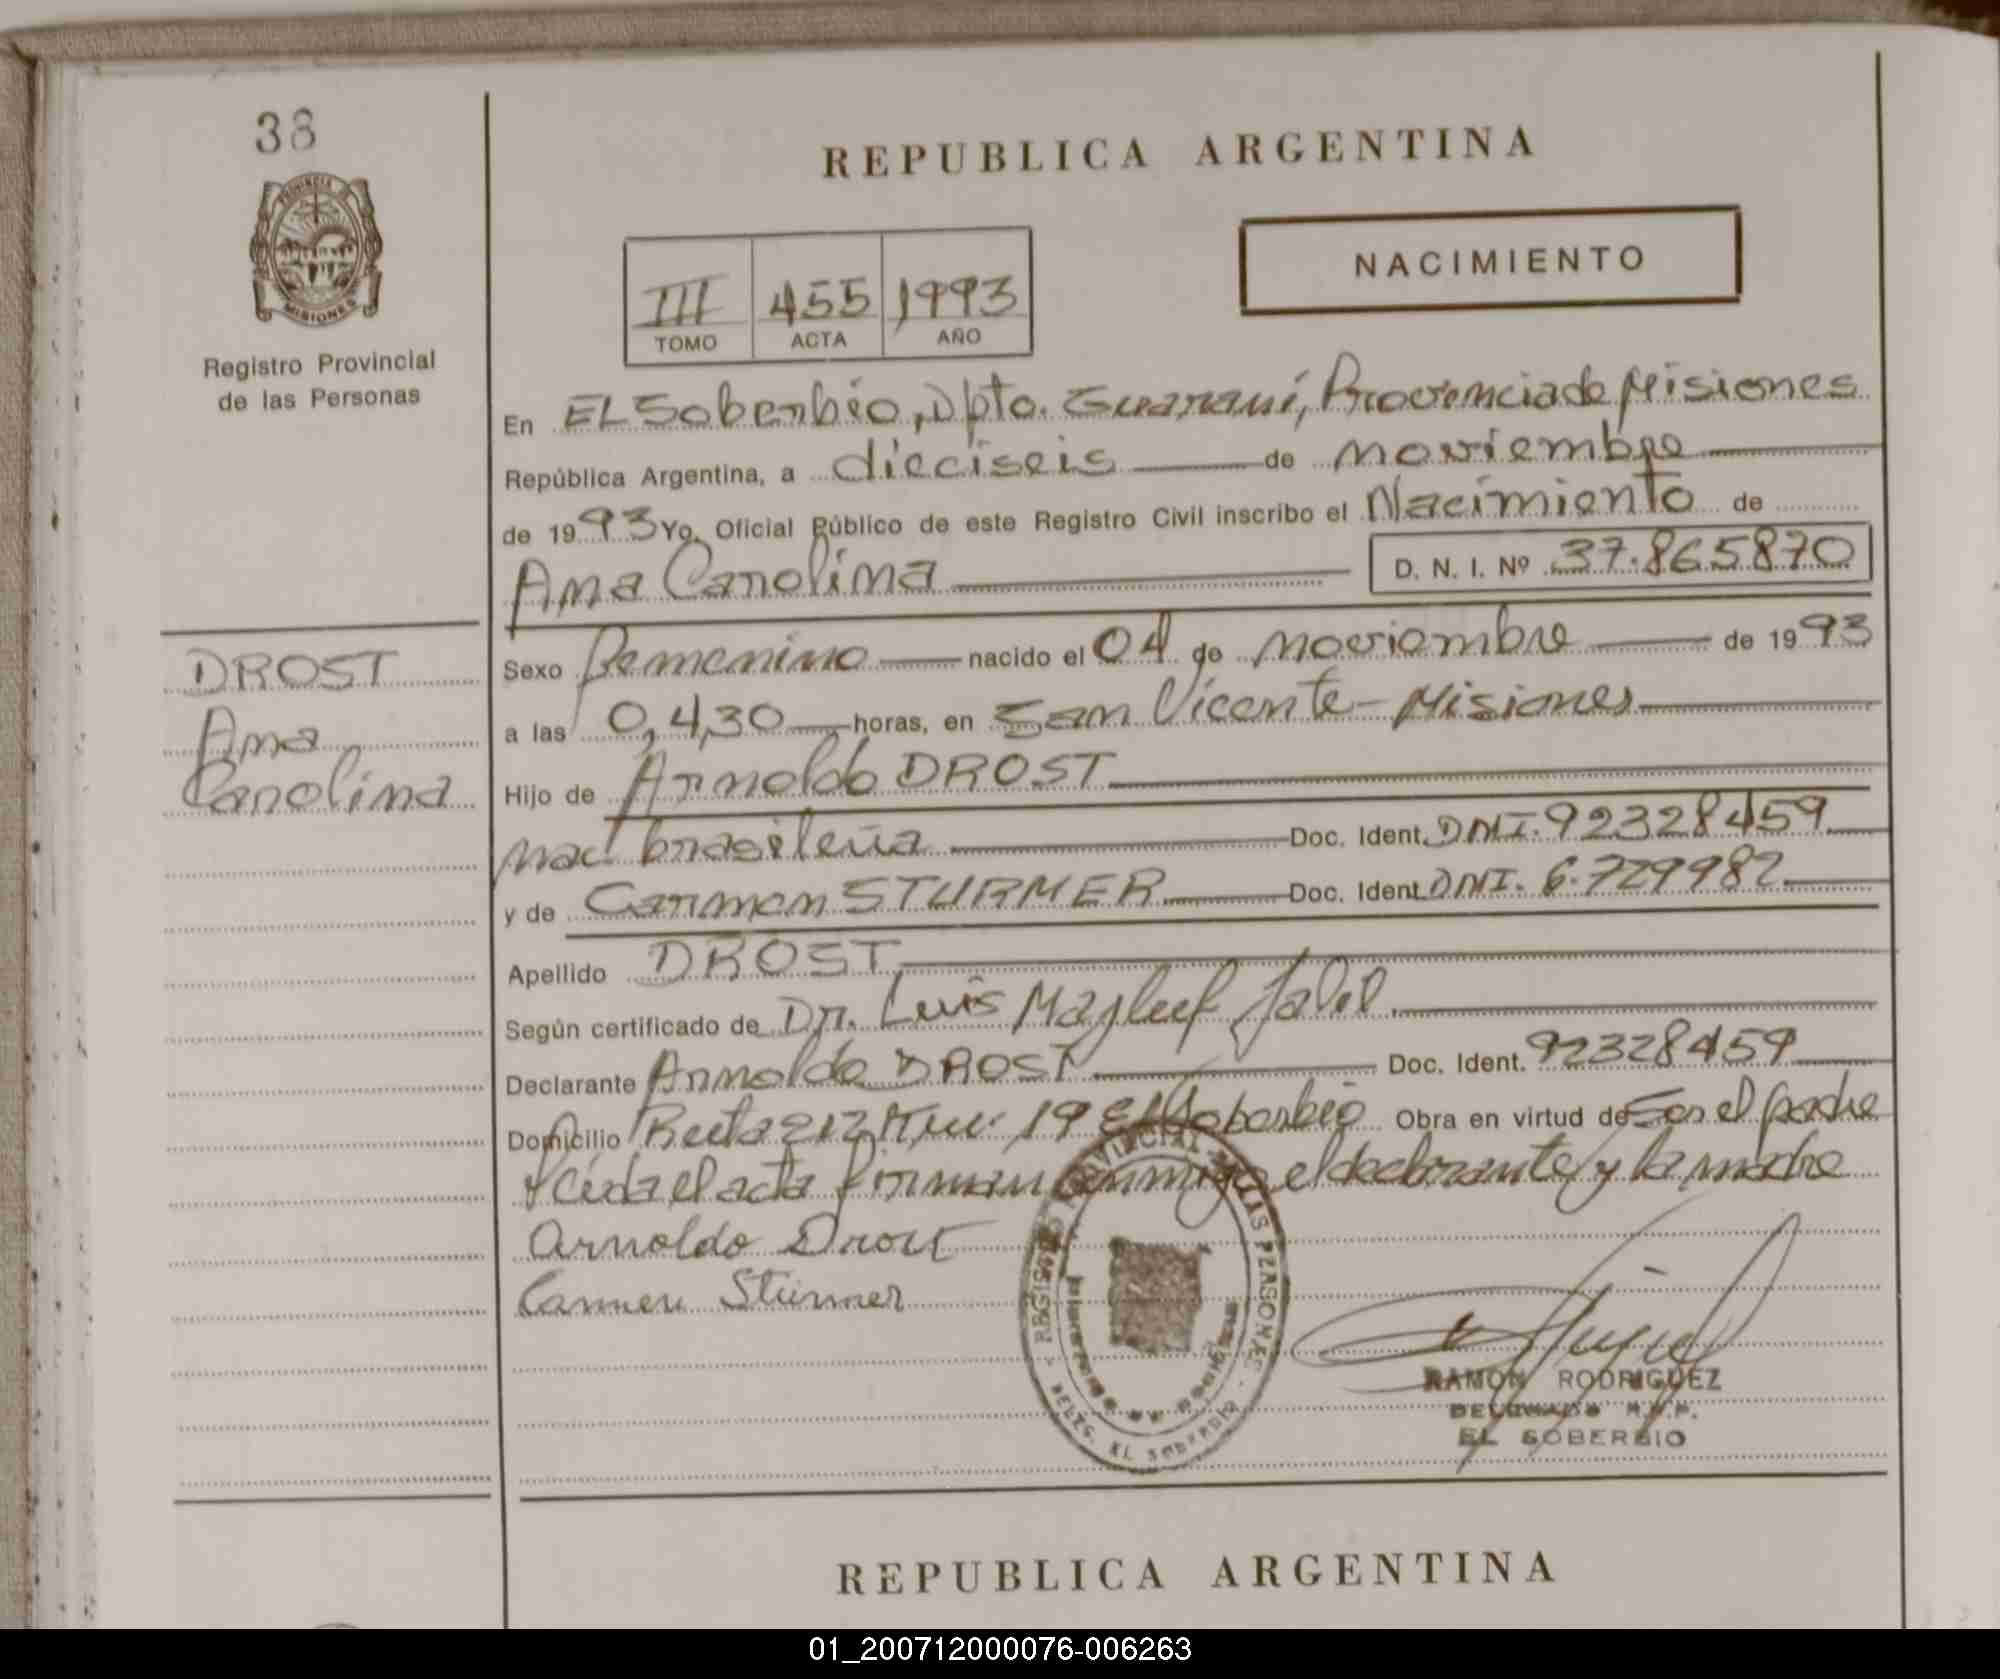 38
PROVINCIA D
MISIONES
Registro Provincial
de las Personas
REPUBLICA ARGENTINA
NACIMIENTO
III 455 1993
TOMO ACTA AÑO
En EL Soberbio, Dpto. Guaraní, Provincia de Misiones
República Argentina, a dieciseis de noviembre
de 1993 Yo, Oficial Público de este Registro Civil inscribo el Nacimiento de
Ana Carolina D. N. I. Nº 37.865870
DROST
Ana
Carolina
Sexo Femenino nacido el 04 de noviembre de 1993
a las 0,4,30 horas, en San Vicente - Misiones
Hijo de Arnoldo DROST
nac. brasileña Doc. Ident. DNI. 92328459
y de Carmen STURMER Doc. Ident. DNI. 6.729982
Apellido DROST
Según certificado de Dr. Luis Jalil
Declarante Arnoldo DROST Doc. Ident. 92328459
Domicilio Ruta 212 Km. 19 El Soberbio Obra en virtud de Ser el padre
Leida el acta firman conmigo el declarante y la madre
Arnoldo Drost
Carmen Stürmer
REGISTRO PROVINCIAL DE LAS PERSONAS
DELEG. EL SOBERBIO
RAMON RODRIGUEZ
DELEGADO R.P.P.
EL SOBERBIO
REPUBLICA ARGENTINA
01_200712000076-006263